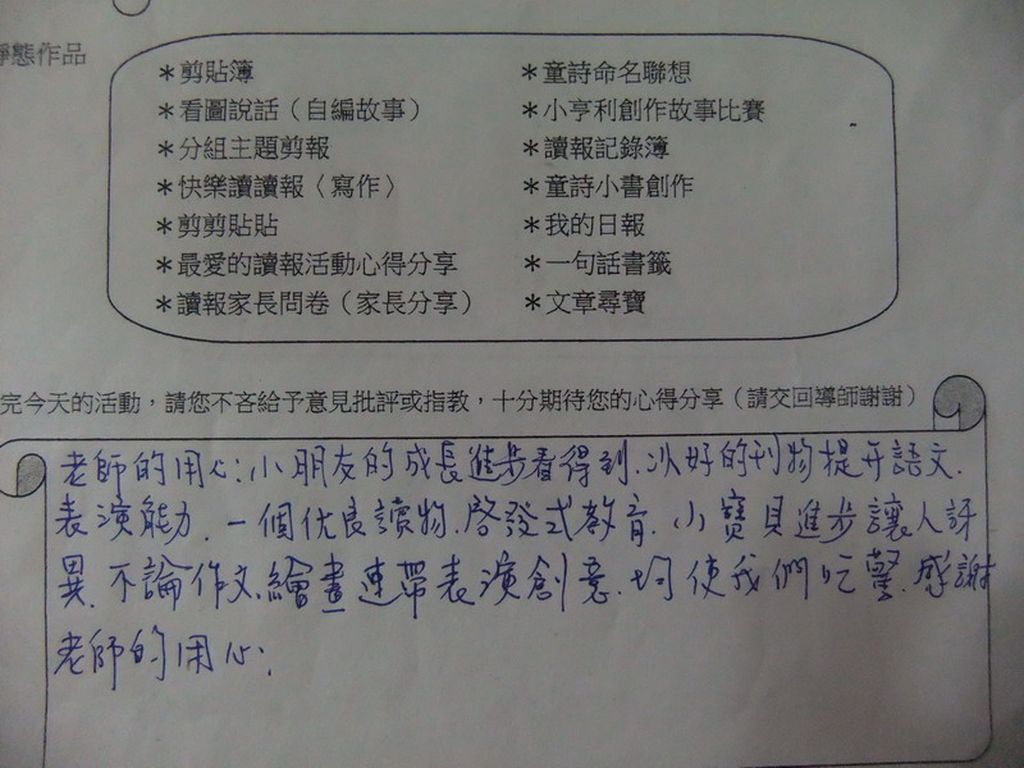 靜態作品
＊剪貼簿
＊看圖說話（自編故事）
＊分組主題剪報
＊快樂讀讀報〈寫作〉
＊剪剪貼貼
＊最愛的讀報活動心得分享
＊讀報家長問卷（家長分享）
＊童詩命名聯想
＊小亨利創作故事比賽
＊讀報記錄簿
＊童詩小書創作
＊我的日報
＊一句話書籤
＊文章尋寶
完今天的活動，請您不吝給予意見批評或指教，十分期待您的心得分享（請交回導師謝謝）
老師的用心:小朋友的成長進步看得到.以好的刊物提升語文.
表演能力.一個优良讀物.啓發式教育.小寶貝進步讓人訝
異.不論作文.繪畫連帶表演創意.均使我們吃驚.感謝
老師的用心: